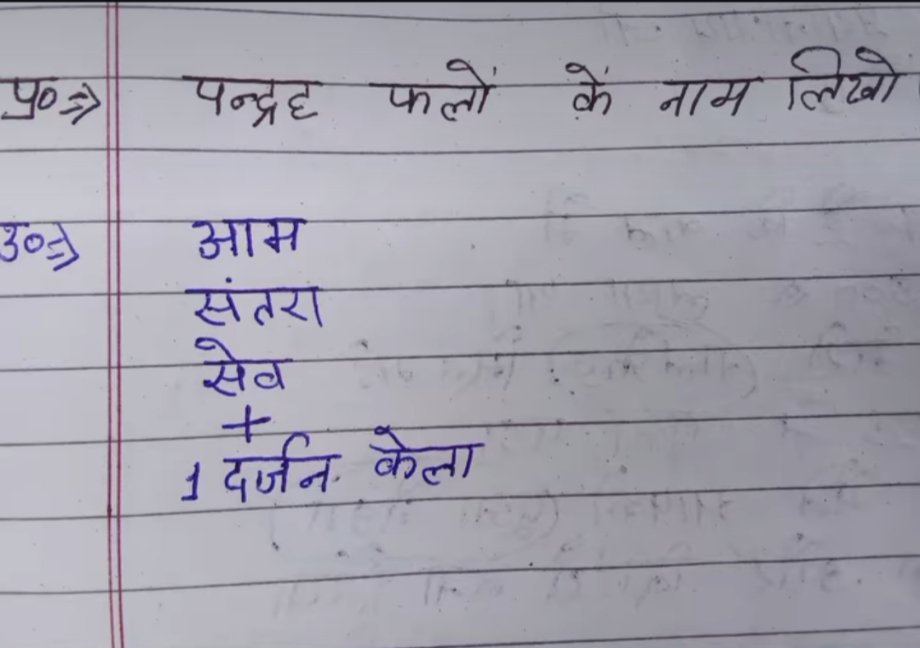 प्र०⇒ पन्द्रह फलों कें नाम लिखो।
उ०⇒ आम
संतरा
सेव
+
1 दर्जन केला